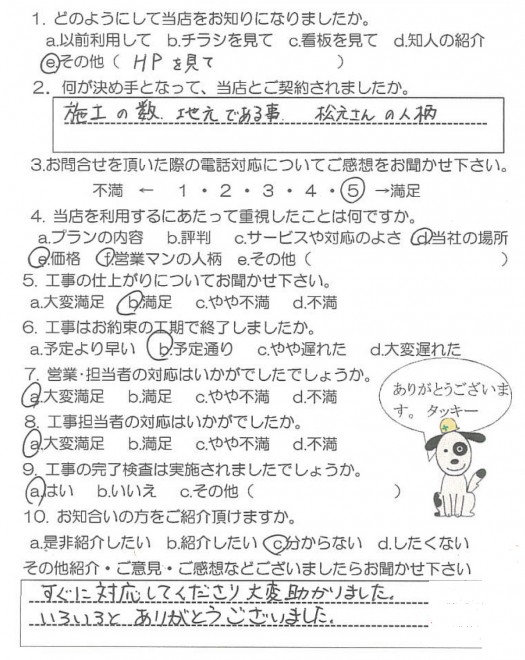 1. どのようにして当店をお知りになりましたか。
a.以前利用して b.チラシを見て c.看板を見て d.知人の紹介
e.その他（ HPを見て ）
2. 何が決め手となって、当店とご契約されましたか。
施工の数、地元である事、 松元さんの人柄
3.お問合せを頂いた際の電話対応についてご感想をお聞かせ下さい。
不満 ← 1・2・3・4・5 →満足
4. 当店を利用するにあたって重視したことは何ですか。
a.プランの内容 b.評判 c.サービスや対応のよさ d.当社の場所
e.価格 f.営業マンの人柄 e.その他（ ）
5. 工事の仕上がりについてお聞かせ下さい。
a.大変満足 b.満足 c.やや不満 d.不満
6. 工事はお約束の工期で終了しましたか。
a.予定より早い b.予定通り c.やや遅れた d.大変遅れた
7. 営業・担当者の対応はいかがでしたでしょうか。
a.大変満足 b.満足 c.やや不満 d.不満
ありがとうございま
す。 タッキー
8. 工事担当者の対応はいかがでしたか。
a.大変満足 b.満足 c.やや不満 d.不満
9. 工事の完了検査は実施されましたでしょうか。
a.はい b.いいえ c.その他（ ）
10. お知合いの方をご紹介頂けますか。
a.是非紹介したい b.紹介したい c.分からない d.したくない
その他紹介・ご意見・ご感想などございましたらお聞かせ下さい
すぐに対応してくださり大変助かりました。
いろいろと ありがとうございました。